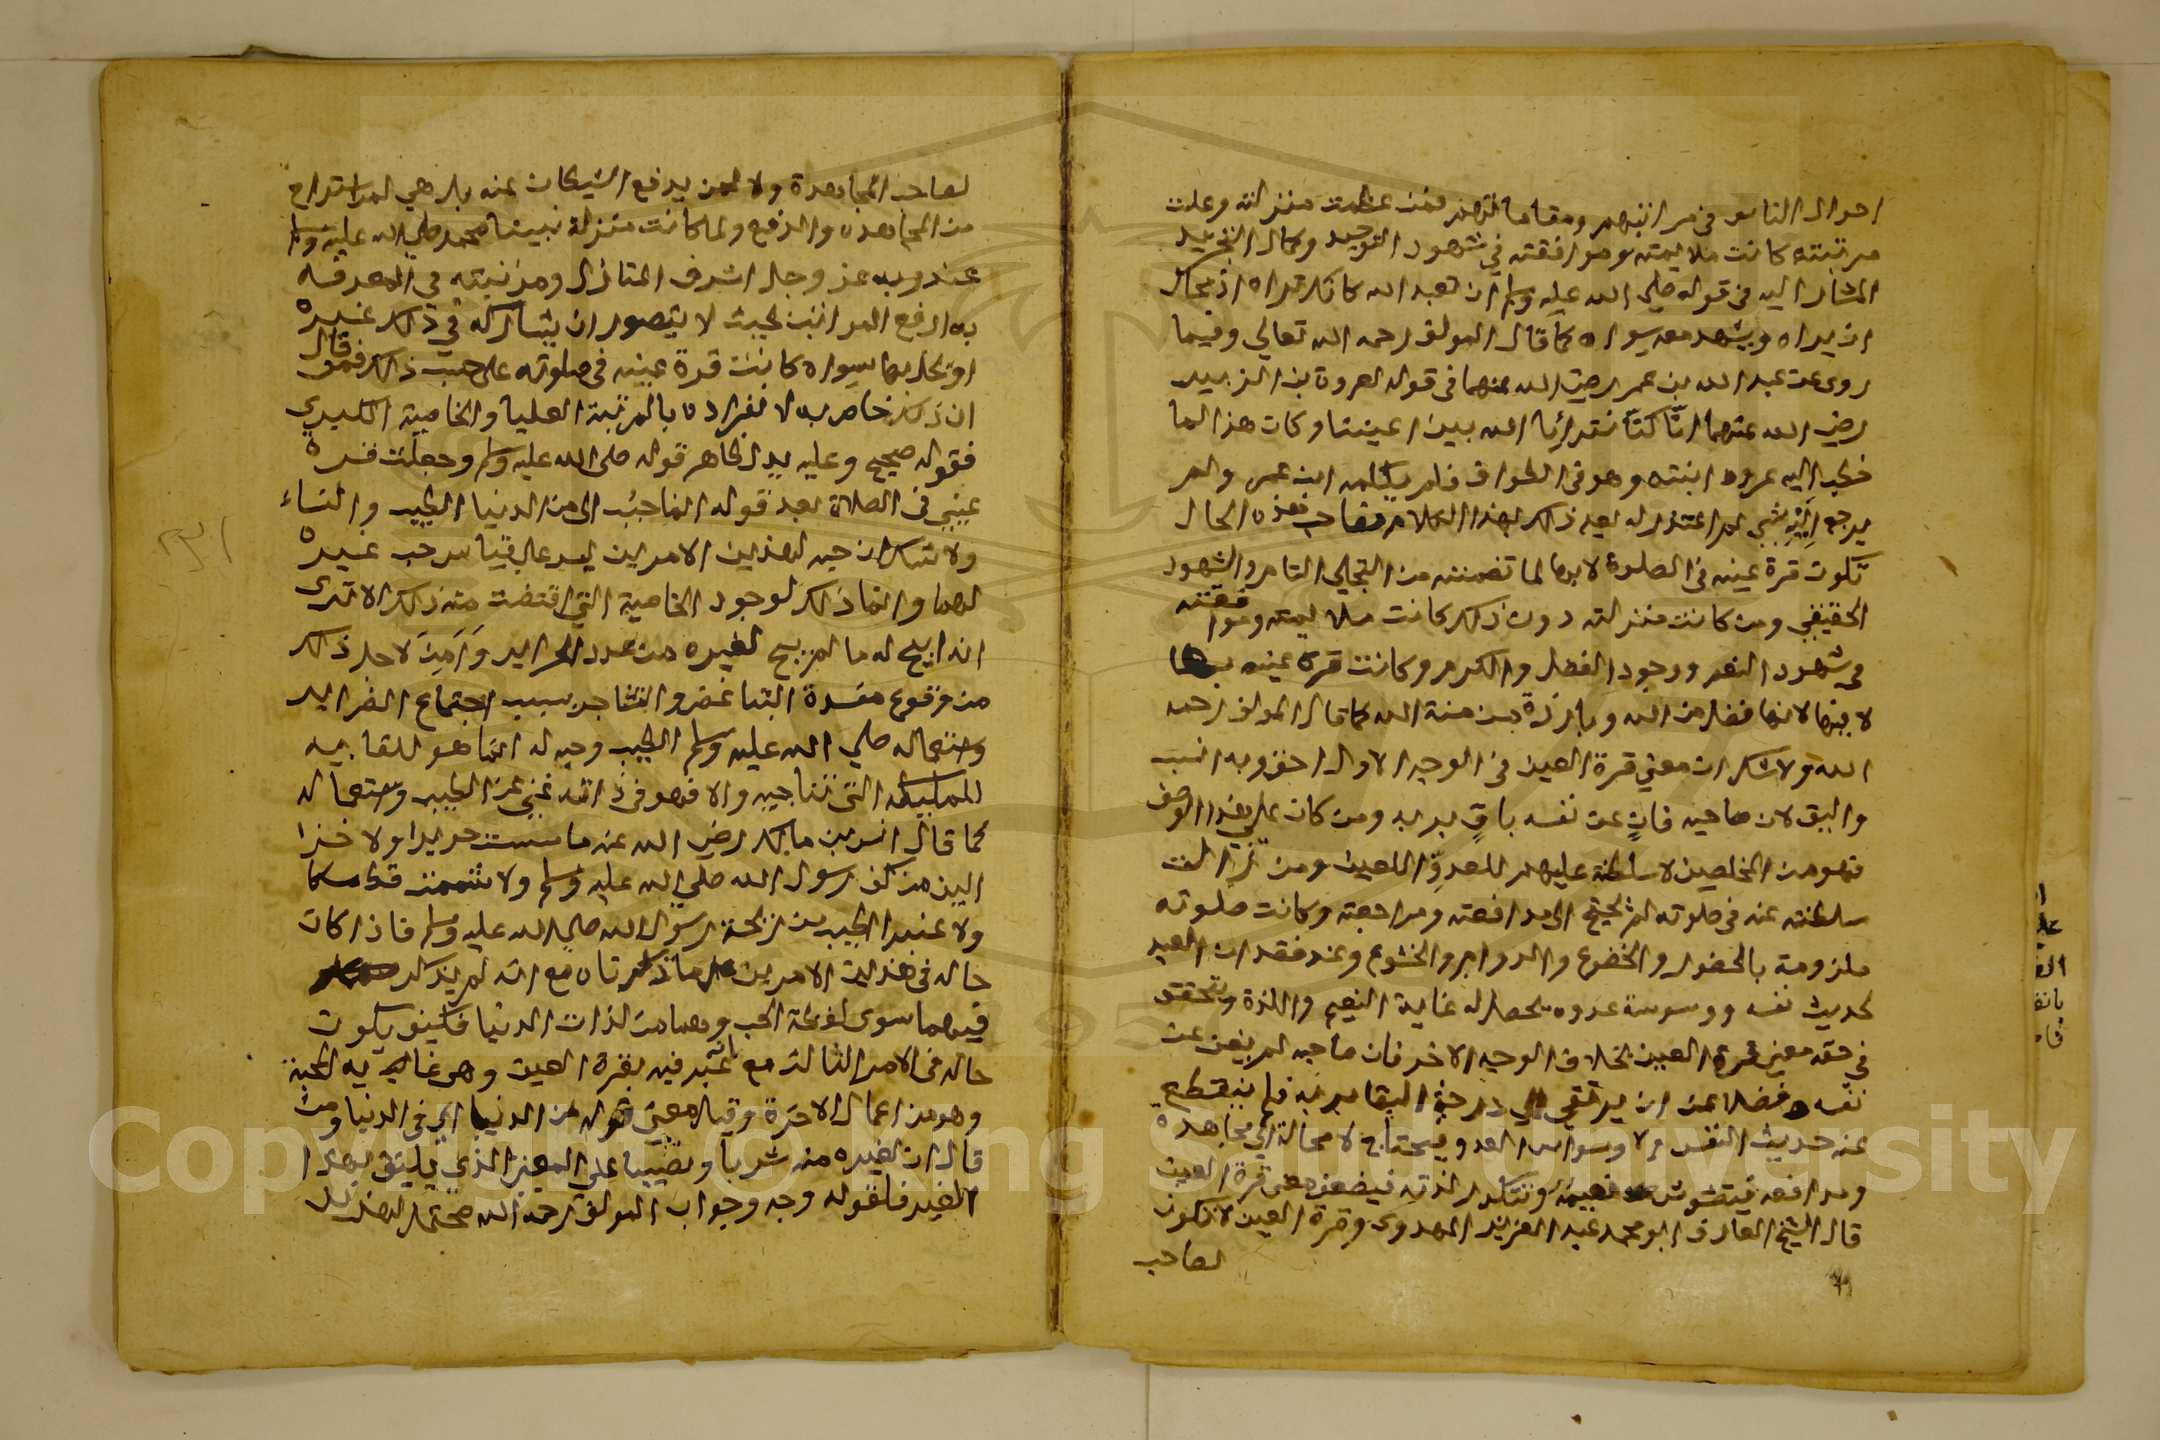 احوال الناس في مراتبهم ومقاماتهم فمن عظمت منزلته وعلت
مرتبته كانت ملايمته وموافقته في شهود التوحيد وكمال التجريد
المشار اليه في قوله صلى الله عليه وسلم ان تعبد الله كانك تراه اذ محال
ان يراه ويشهد معه سواه كما قال المولف رحمه الله تعالى وفيما
روى عن عبد الله بن عمر رضي الله عنهما في قوله لعروة بن الزبير
رضي الله عنهما انّا كنّا نترائا الله بين اعيننا وكان هذا لما
خطب اليه عروه ابنته وهو في الطواف فلم يكلمه ابن عمر ولم
يرجع اليه بشي ثم اعتذر له بعد ذلك بهذا الكلام فصاحب هذه الحال
تكون قرة عينه في الصلوة لا بها لما تضمنته من التجلي التام والشهود
الحقيقي ومن كانت منزلته دون ذلك كانت ملايمته وموافقته
في شهود النعم ووجود الفضل والكرم وكانت قرة عينه بها
لا فيها لانها فضل من الله وبارزة من منة الله كما قال المولف رحمه
الله ولا شك ان معنى قرة العين في الوجه الاول احق وبه انسب
واليق لان صاحبه فانٍ عن نفسه باقٍ بربه ومن كان على هذا الوصف
فهو من المخلصين لا سلطنة عليهم للعدوّ اللعين ومن انتفت
سلطنته عنه في صلوته لم يحتج الى مدافعته ومراجعته وكانت صلوته
ملزومة بالحضور والخضوع والدوام والخشوع وعند فقدان العبد
لحديث نفسه ووسوسة عدوه يحصل له غاية النعيم واللذة ويتحقق
في حقه معنى قرة العين بخلاف الوجه الاخر فان صاحبه لم يفن عن
نفسه فضلا عن ان يرتقي الى درجة البقا بربه فلم ينقطع
عنه حديث النفس ولا وسواس العدو فيحتاج لا محالة الى مجاهدة
ومدافعه فيتشوش نعيمه وتتكدر لذته فيضعف معنى قرة العين
قال الشيخ العارف ابو محمد عبد العزيز المهدوى وقرة العين لا تكون
لصاحب
لصاحب المجاهدة ولا لمن يدفع الشيطان عنه بل هي لمن استراح
من المجاهده والدفع ولما كانت منزلة نبينا محمد صلى الله عليه وسلم
عند ربه عز وجل اشرف المنازل ومرتبته في المعرفة
به ارفع المراتب بحيث لا يتصور ان يشاركه في ذلك غيره
او يحل بها سواه كانت قرة عينه في صلوته على حسب ذلك فمن قال
ان ذلك خاص به لانفراده بالمرتبة العليا والخاصية الكبرى
فقوله صحيح وعليه يدل ظاهر قوله صلى الله عليه وسلم وجعلت قرة
عيني في الصلاة بعد قوله انما حبب الى من الدنيا الطيب والنساء
ولا شك ان حبه لهذين الامرين ليس على قياس حب غيره
لهما وانما ذلك لوجود الخاصية التي اقتضت منه ذلك الا ترى
انه ابيح له ما لم يبح لغيره من عدد الحراير وَاَمِنَ لاجل ذلك
من وقوع مفسدة التباغض والتشاجر بسبب اجتماع الضراير
واستعماله صلى الله عليه وسلم الطيب وحبه له انما هو للقا به
الملايكة التي تناجيه والا فهو في ذاته غني عن الطيب واستعماله
كما قال انس بن مالك رضي الله عنه ما مسست حريرا ولا خزا
الين من كف رسول الله صلى الله عليه وسلم ولا شممت قط مسكا
ولا عنبرا اطيب من رائحة رسول الله صلى الله عليه وسلم فاذا كان
حاله في هذين الامرين ما ذكرناه مع انه لم يذكر
فيهما سوى لفظة الحب وهما من لذات الدنيا فكيف يكون
حاله في الامر الثالث مع انه عبر فيه بقرة العين وهو غاية المحبة
وهو من اعمال الاخرة وقيل معنى قوله من الدنيا اي في الدنيا ومن
قال ان لغيره منه شربا ونصيبا على المعنى الذي يليق بهذا
الغير فلقوله وجه وجواب المولف رحمه الله محتمل لهذين